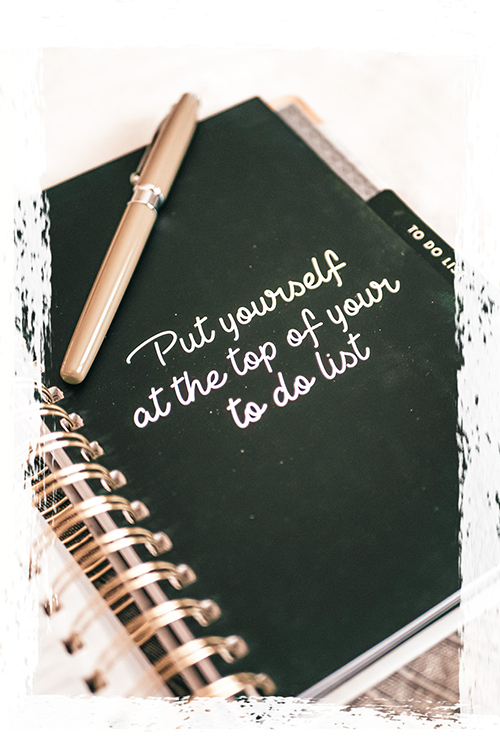 Put yourself
at the top of your
to do list
TO DO LI